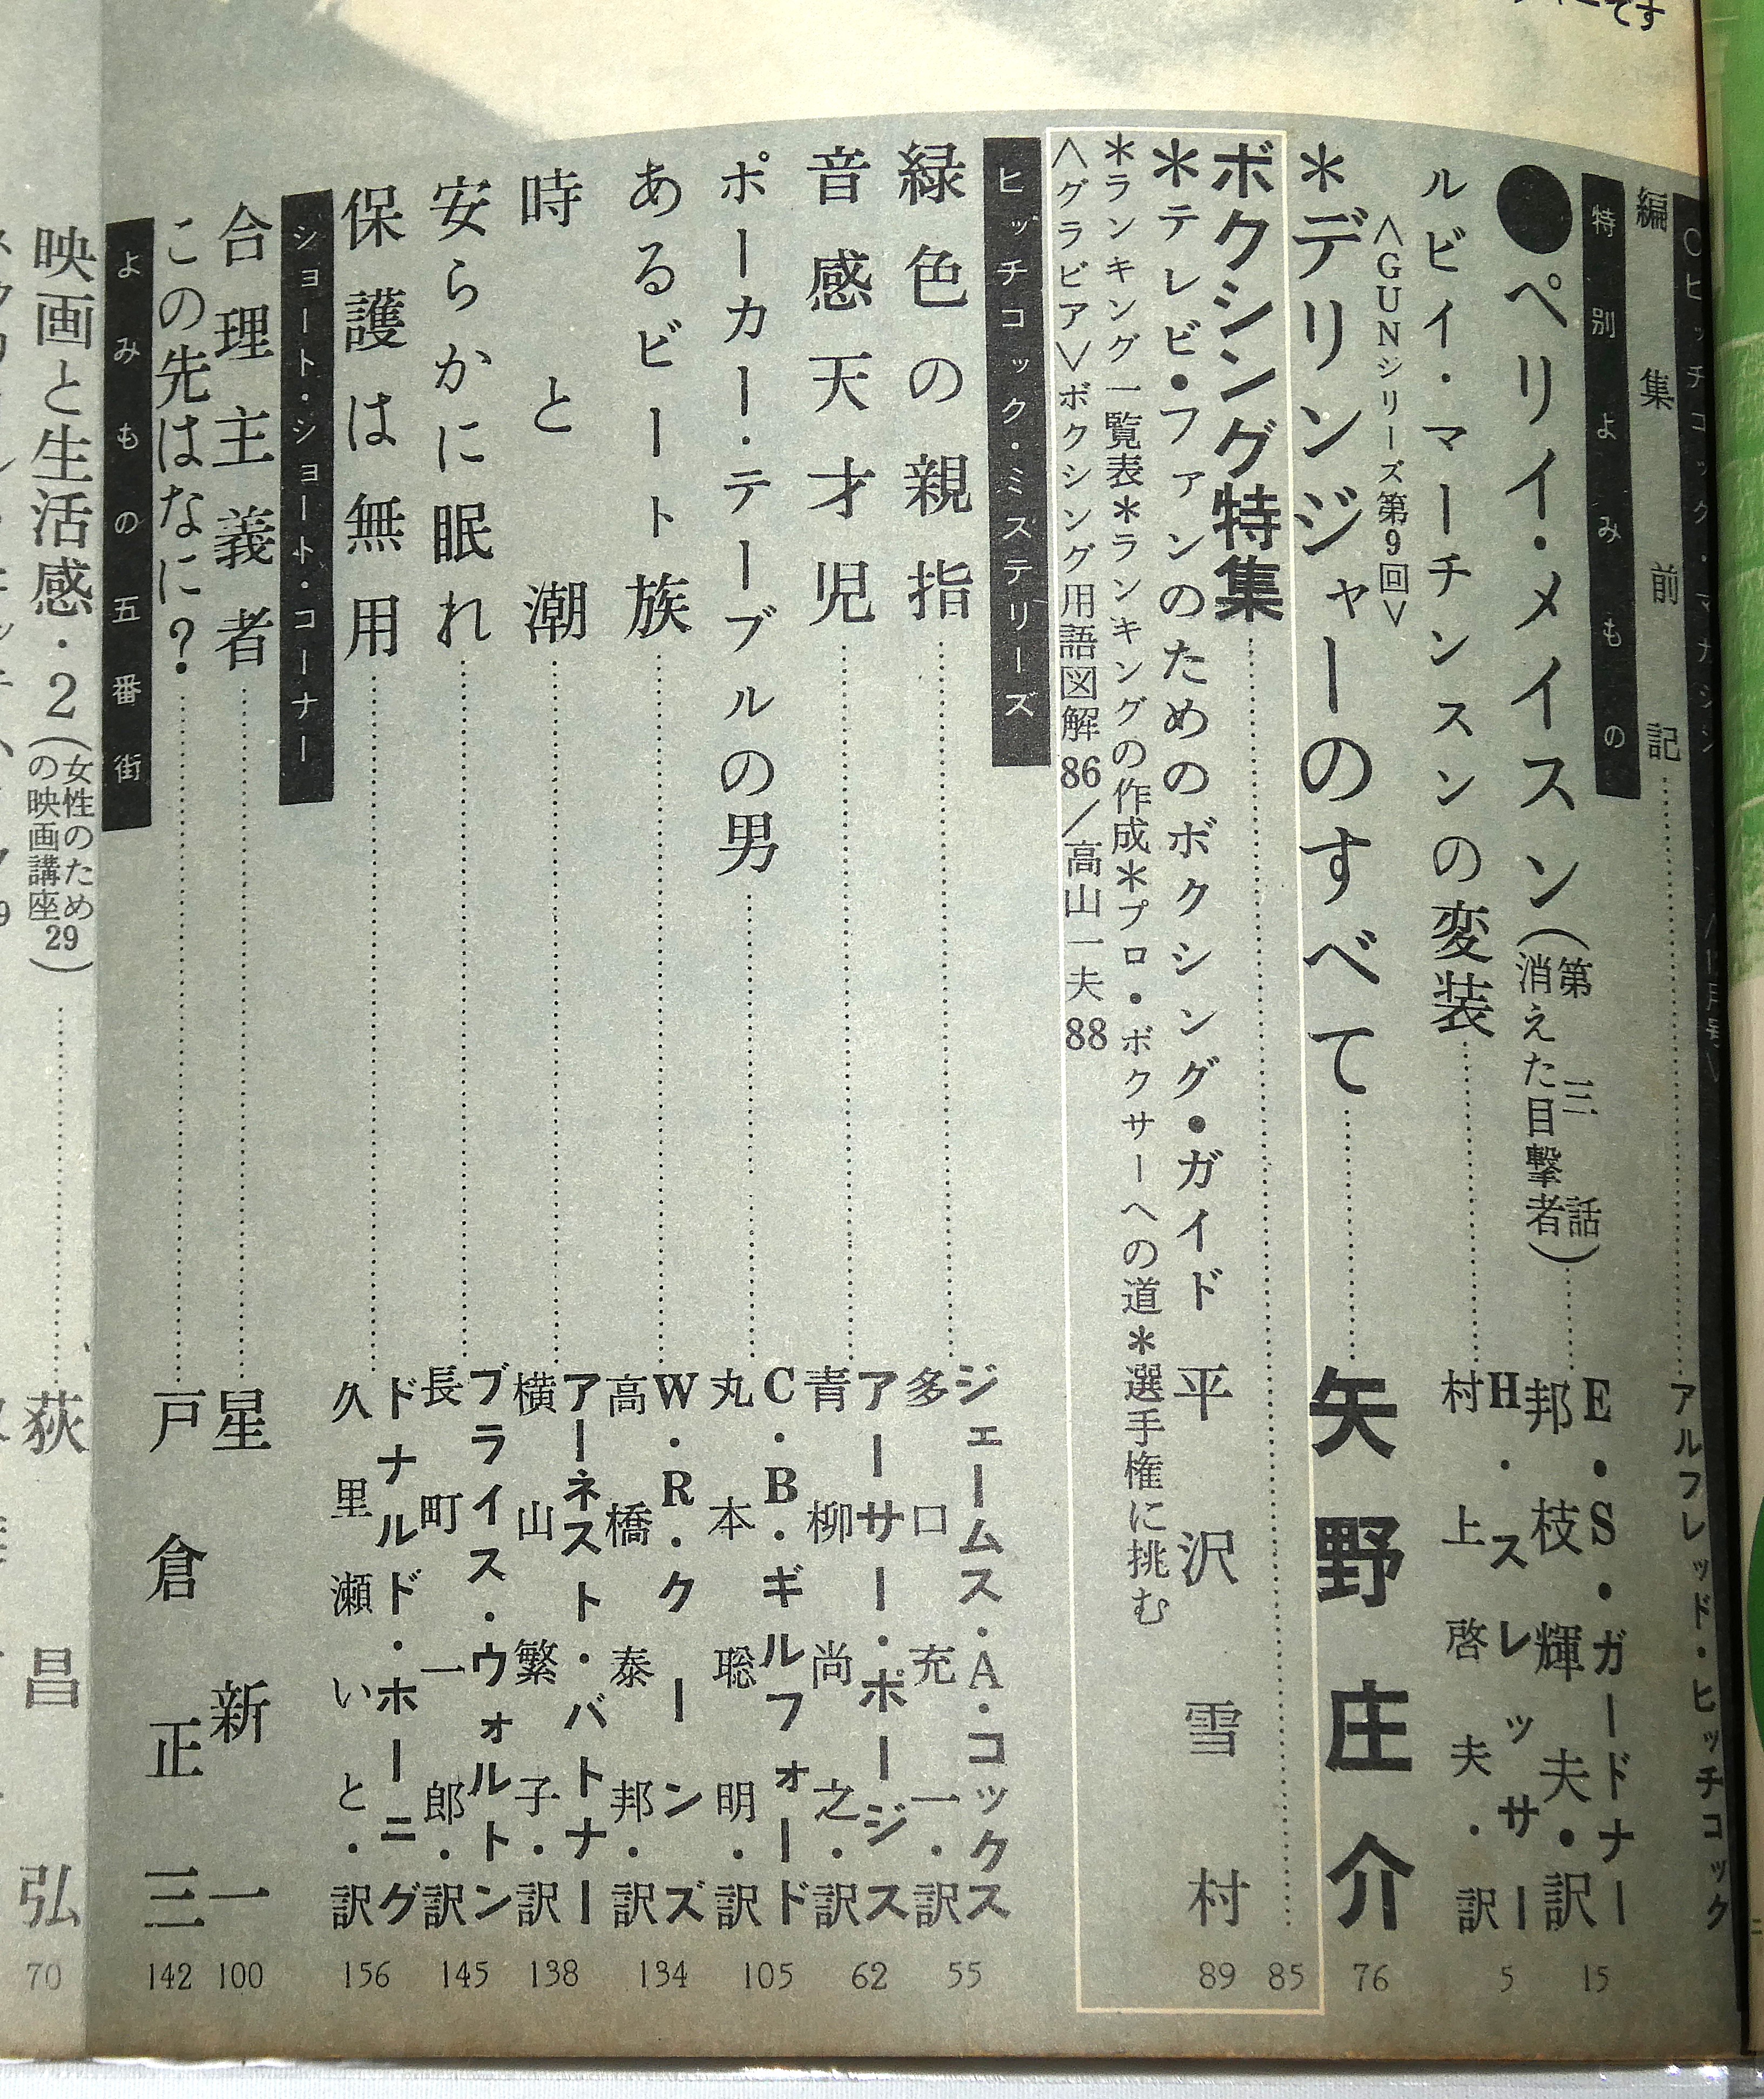 です
○ヒッチコック・マガジン
編集前記
アルフレッド・ヒッチコック
特別よみもの
●ペリイ・メイスン(第三話 消えた目撃者)
E・S・ガードナー
邦枝輝夫・訳
15
ルビイ・マーチンスンの変装
H・スレッサー
村上啓夫・訳
5
<GUNシリーズ第9回>
*デリンジャーのすべて
矢野庄介
76
ボクシング特集
85
*テレビ・ファンのためのボクシング・ガイド
平沢雪村
89
*ランキング一覧表*ランキングの作成*プロ・ボクサーへの道*選手権に挑む
<グラビア>ボクシング用語図解86/高山一夫88
ヒッチコック・ミステリーズ
緑色の親指
ジェームス・A・コックス
多口充一・訳
55
音感天才児
アーサー・ポージス
青柳尚之・訳
62
ポーカー・テーブルの男
C・B・ギルフォード
丸本聡明・訳
105
あるビート族
W・R・クーンズ
高橋泰邦・訳
134
時と潮
アーネスト・バトナー
横山繁子・訳
138
安らかに眠れ
ブライス・ウォルトン
長町一郎・訳
145
保護は無用
ドナルド・ホーニグ
久里瀬いと・訳
156
ショート・ショート・コーナー
合理主義者
星新一
100
この先はなに?
戸倉正三
142
よみもの五番街
映画と生活感・2(女性のための映画講座29)
荻昌弘
70